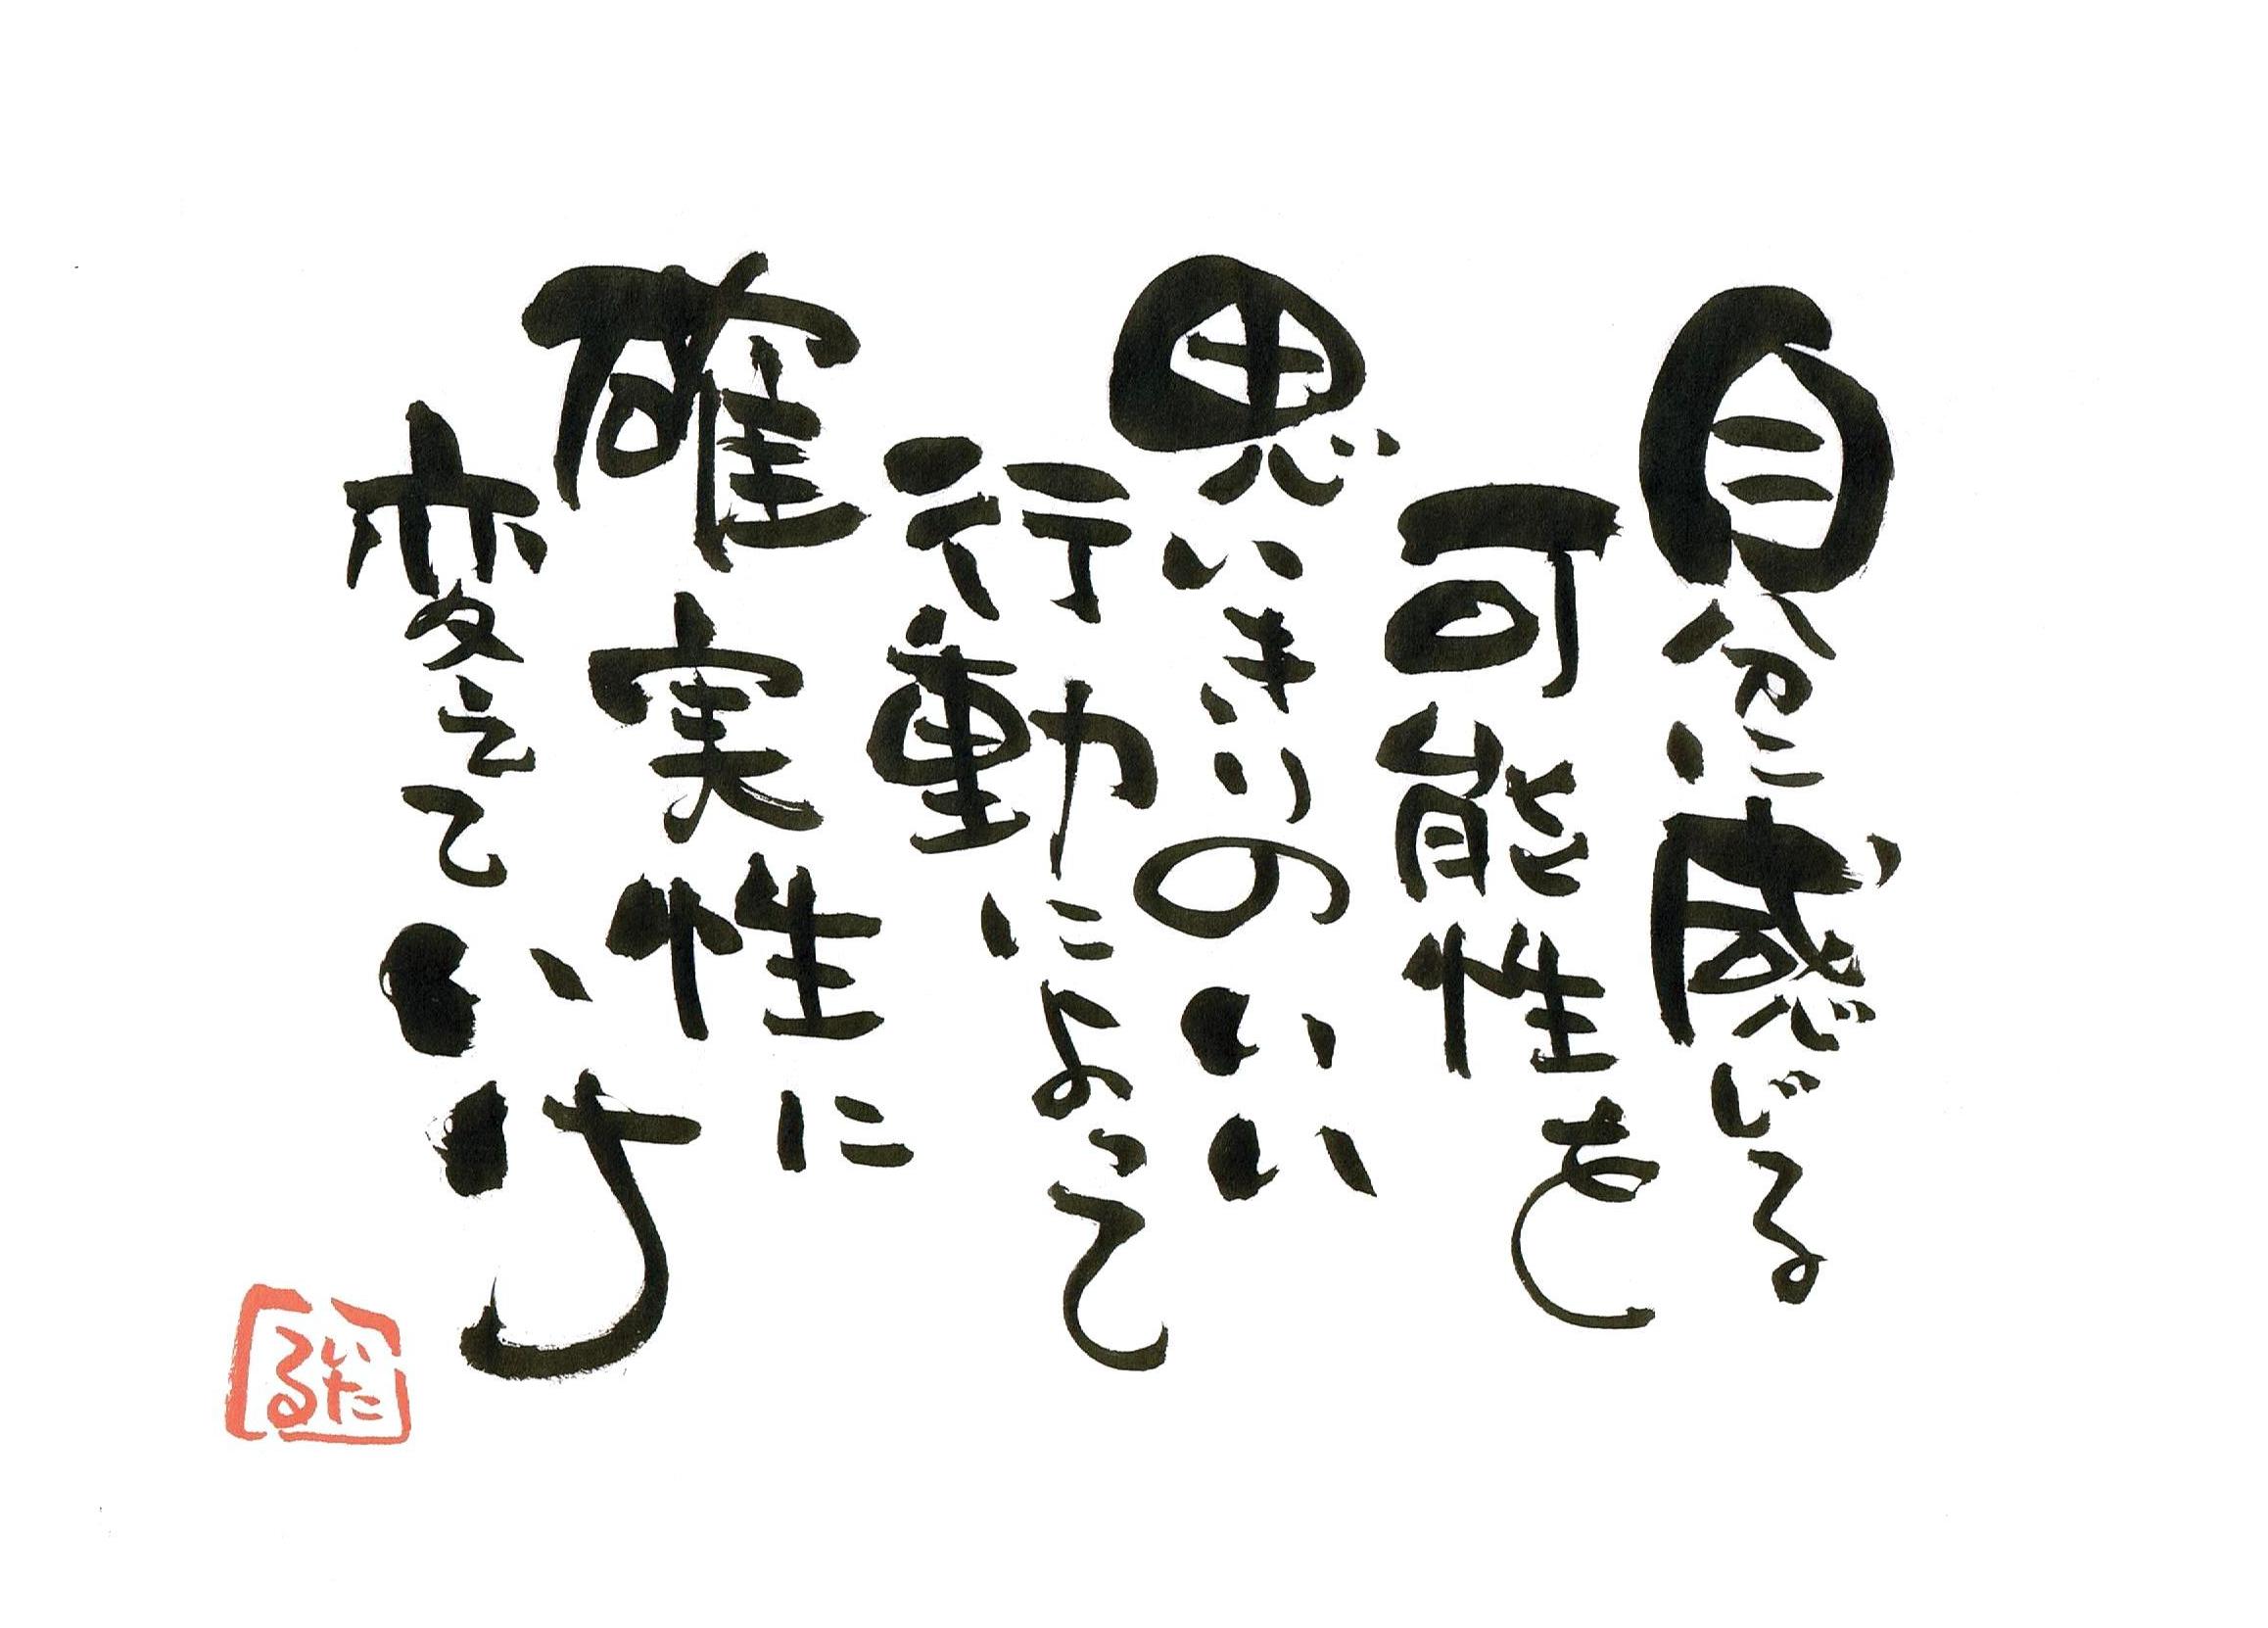 自分に感じる
可能性を
思いきりのいい
行動によって
確実性に
変えていけ
いたる